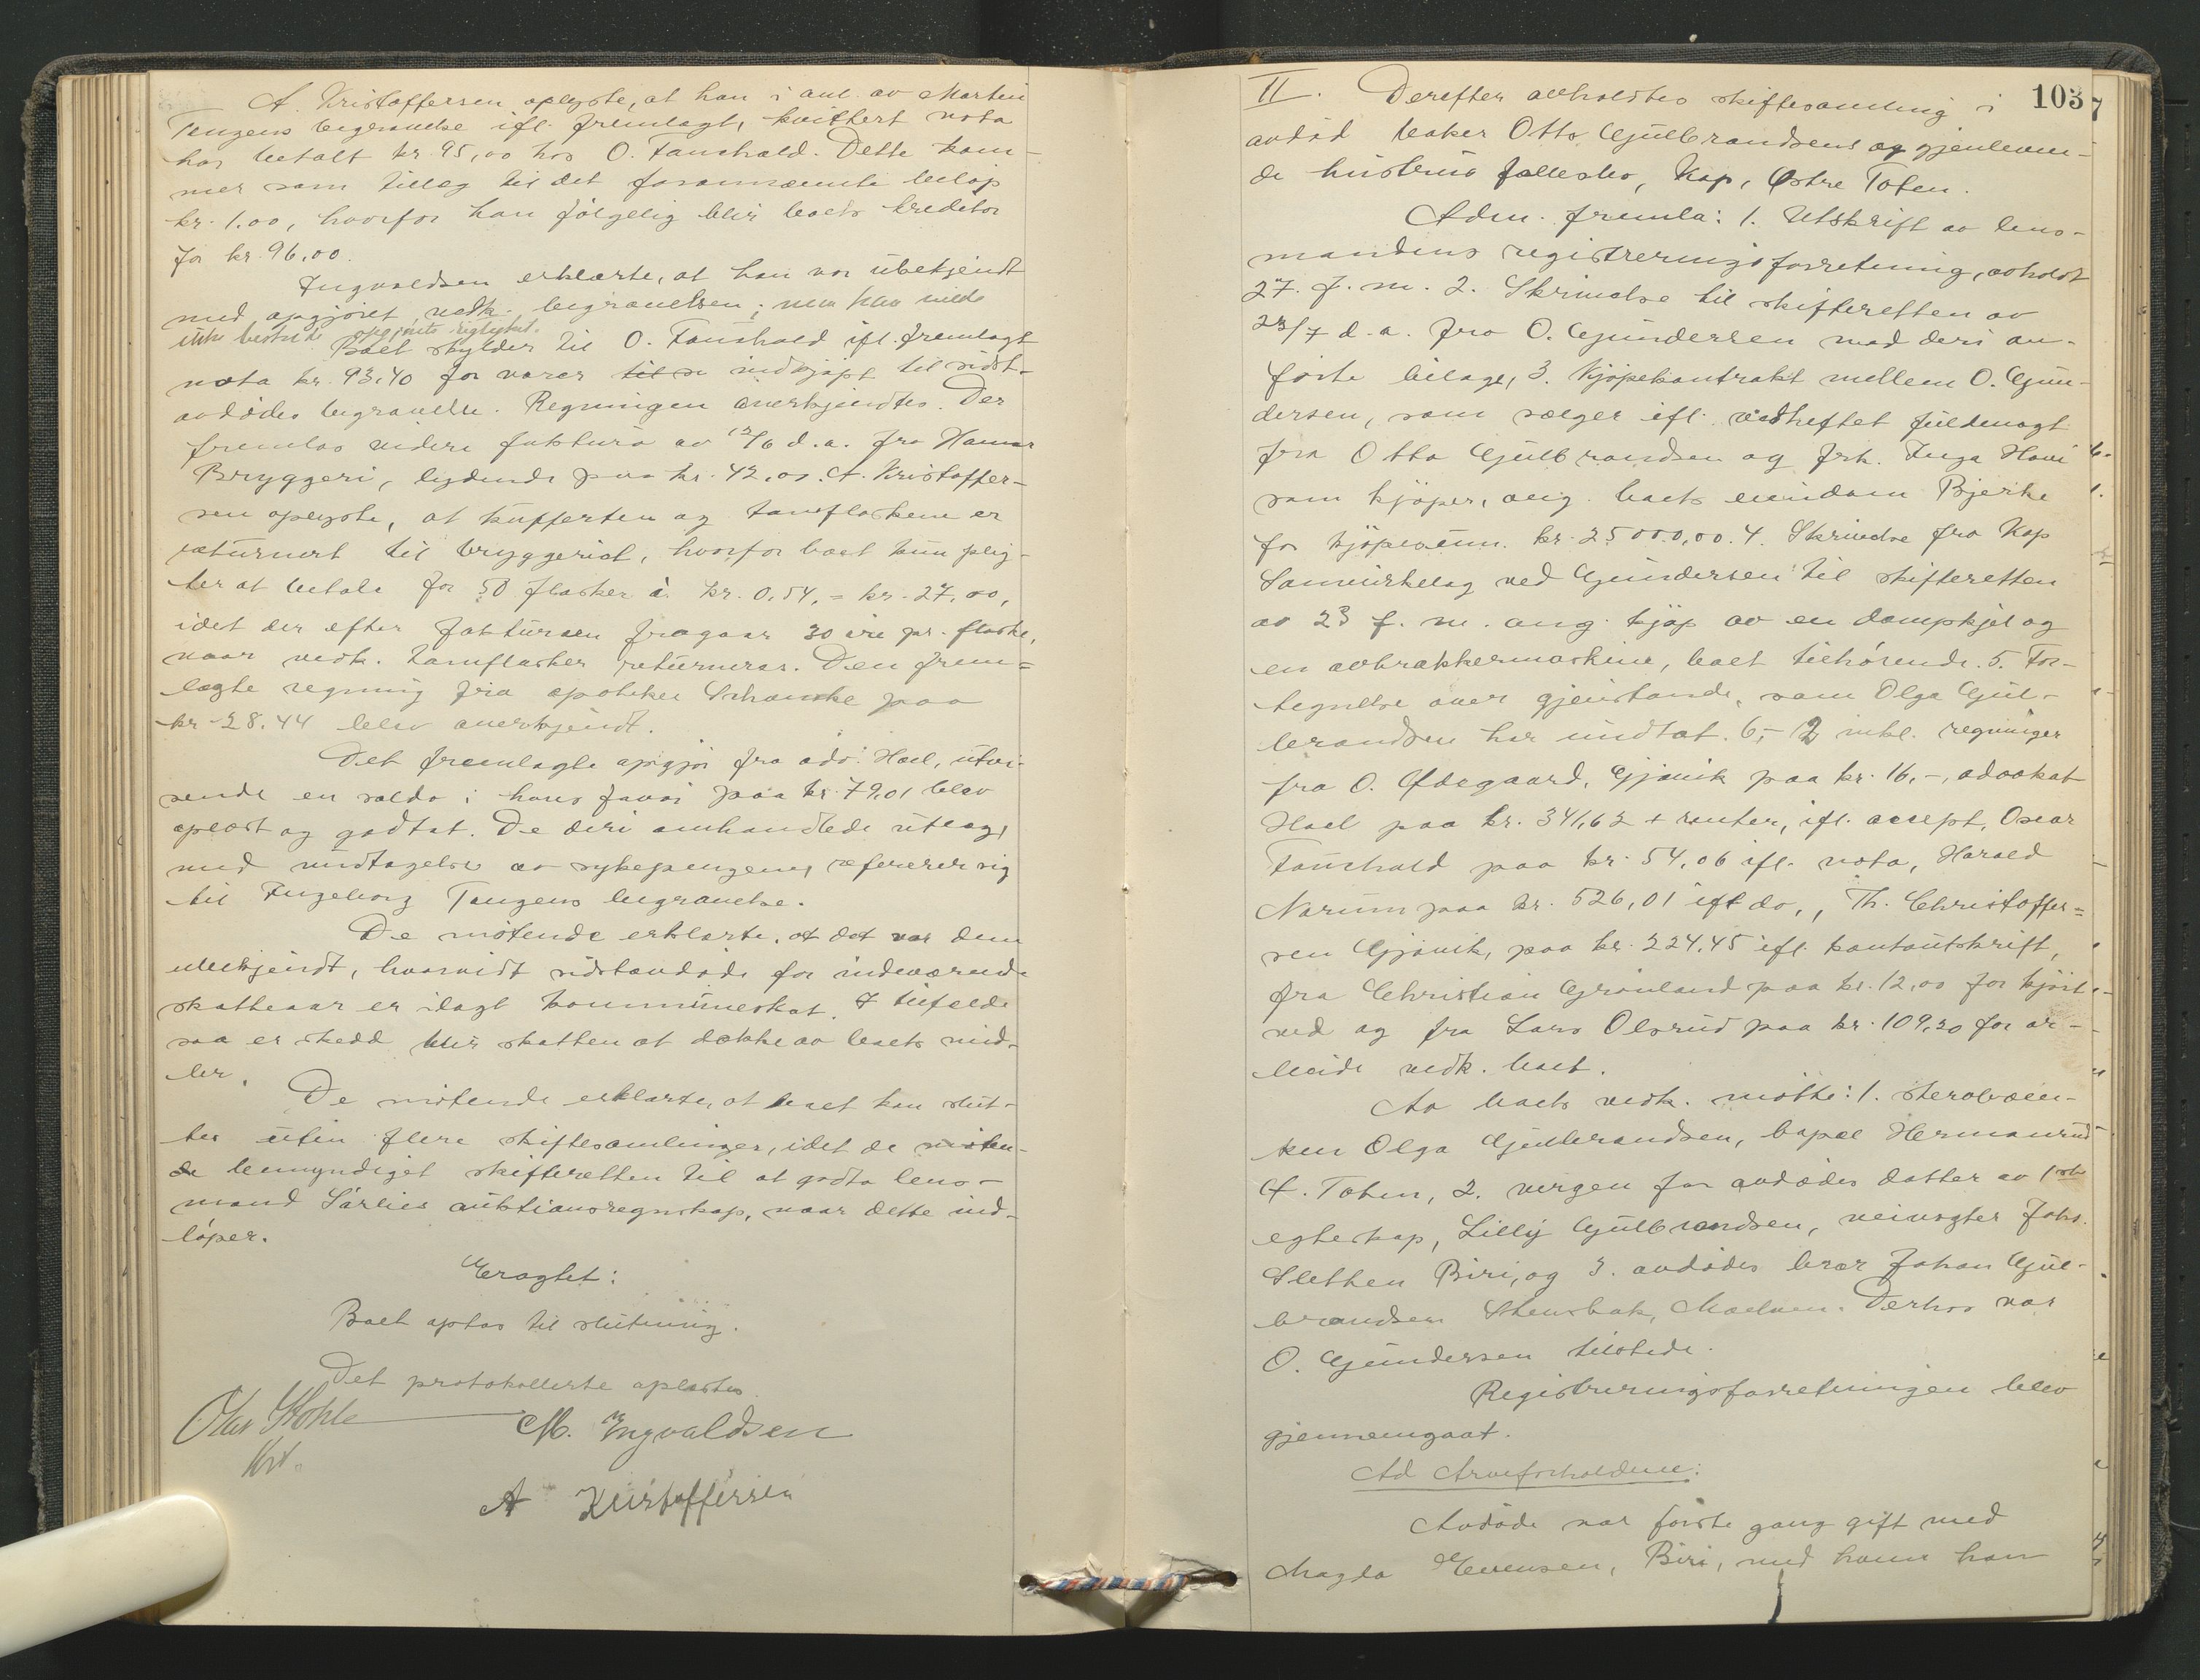 A. Kristoffersen oplyste, at han i anl. av Martin
Tangens begravelse ifl. fremlagt, kvittert nota
har betalt kr. 95,00 hos O. Fauchald. Dette kom-
mer som tillæg til det forannævnte beløp
kr. 1.00, hvorfor han følgelig blir boets kreditor
for kr. 96,00.
Ingvaldsen erklærte, at han var ubekjendt
med opgjøret vedk. begravelsen; men han vilde
ikke bestride opgjørets rigtighet.
Boet skylder til O. Fauchald ifl. fremlagt
nota kr. 93,40 for varer til si indkjøpt til sidst-
avdødes begravelse. Regningen anerkjendtes. Der
fremlas videre faktura av 12/6 d.a. fra Hamar
Bryggeri, lydende paa kr. 42,00. A. Kristoffer-
sen oplyste, at kufferten og tomflaskene er
returnert til bryggeriet, hvorfor boet kun plig-
ter at betale for 50 flasker à kr. 0,54, = kr. 27,00,
idet der efter fakturaen fragaar 30 øre pr. flaske,
naar vedk. tomflasker returneres. Den frem-
lagte regning fra apoteker Schanche paa
kr. 28.44 blev anerkjendt.
Det fremlagte opgjør fra adv. Hoel, utvi-
sende en saldo i hans favør paa kr. 79,01 blev
oplæst og godtat. De deri omhandlede utlæg,
med undtagelse av sykepengene, refererer sig
til Ingeborg Tangens begravelse.
De møtende erklærte, at det var dem
ubekjendt, hvorvidt sidstavdøde for indeværende
skatteaar er ilagt kommuneskat. I tilfælde
saa er skedd blir skatten at dække av boets mid-
ler.
De møtende erklærte, at boet kan slut-
tes uten flere skiftesamlinger, idet de møten-
de bemyndiget skifteretten til at godta lens-
mand Sørlies auktionsregnskap, naar dette ind-
løper.
Eragtet:
Boet optas til slutning.
Det protokollerte oplæstes.
Olav Stohle
M. Ingvaldsen
A Kristoffersen
103
II. Derefter avholdtes skiftesamling i
avdød baker Otto Gulbrandsens og gjenleven-
de hustrus fællesbo, Kap, Østre Toten.
Adm. fremla: 1. Utskrift av lens-
mandens registreringsforretning, avholdt
27. f.m. 2. Skrivelse til skifteretten av
23/7 d.a. fra O. Gundersen med deri an-
førte bilage, 3. Kjøpekontrakt mellem O. Gun-
dersen, som sælger ifl. vedheftet fuldmagt
fra Otto Gulbrandsen og frk. Inga Hovi
som kjøper, ang. boets eiendom Bjerke
for kjøpesum. kr. 25000,00. 4. Skrivelse fra Kap
Samvirkelag ved Gundersen til skifteretten
av 23 f.m. ang. kjøp av en dampkjel og
en avtrækkermaskine, boet tilhørende. 5. For-
tegnelse over gjenstande, som Olga Gul-
brandsen har undtat. 6,- 12 inkl. regninger
fra O. Ødegaard, Gjøvik paa kr. 16,-, advokat
Hoel paa kr. 341,62 + renter, ifl. accept, Oscar
Fauchald paa kr. 54,06 ifl. nota, Harald
Narum paa kr. 526,01 ifl do., Th. Christoffer-
sen Gjøvik, paa kr. 224.45 ifl. kontoutskrift,
fra Christian Grønland paa kr. 12,00 for kjørt
ved og fra Lars Olsrud paa kr. 109,20 for ar-
beide vedk. boet.
Av boets vedk. møtte: 1. Sterboen-
ken Olga Gulbrandsen, bopæl Hermanrud
Ø. Toten, 2. vergen for avdødes datter av 1ste
egteskap, Lilly Gulbrandsen, veivogter Johs.
Slethen Biri, og 3. avdødes bror Johan Gul-
brandsen Stensbak, Moelven. Derhos var
O. Gundersen tilstede.
Registreringsforretningen blev
gjennemgaat.
Ad Arveforholdene:
Avdøde var første gang gift med
Magda Evensen, Biri, med hvem han